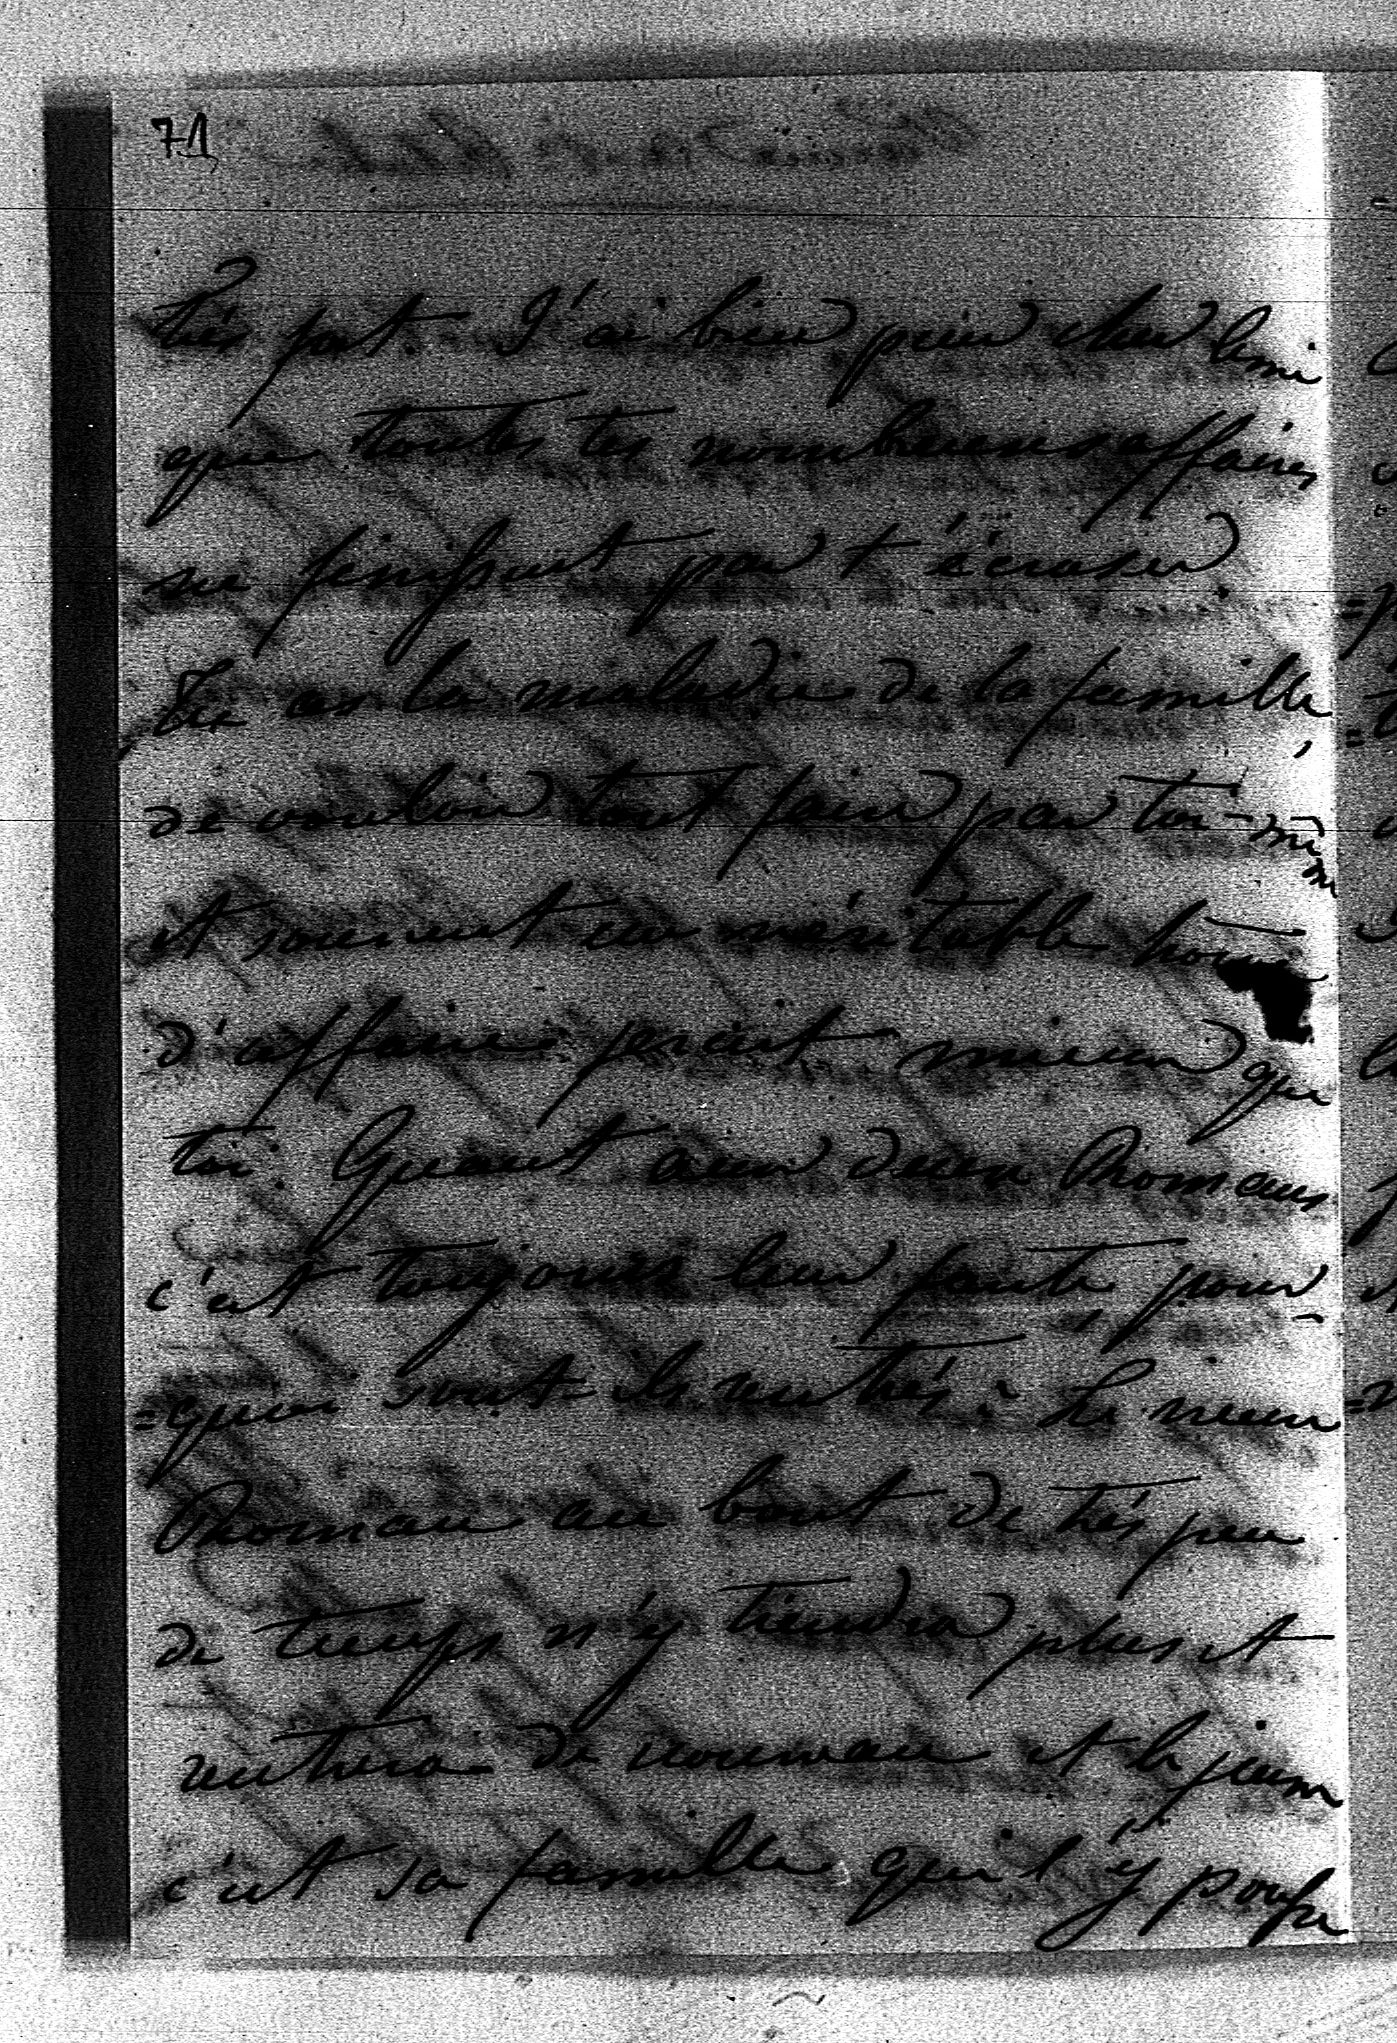 71
très fort. J'ai bien peur cher Remi
que toutes tes nombreuses affaires
ne finissent par t'écraser
Tu as la maladie de la famille,
de vouloir tout faire par toi-même
et souvent un véritable home
d'affaire ferait mieux que
toi. Quant aux deux Thomans
c'est toujours leur faute, pour=
=quoi sont-ils rentrés? Le vieux
Thoman au bout de très peu
de temps n'y tiendra plus et
rentrera de nouveau et le jeune
c'est sa famille qui l'y pousse